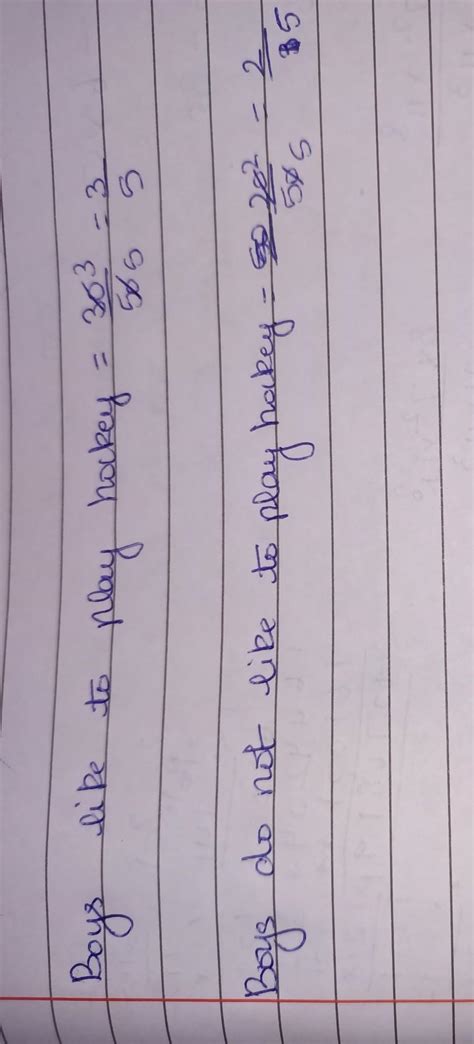 Boys like to play hockey = 30/50 = 3/5
Boys do not like to play hockey = 20/50 = 2/5